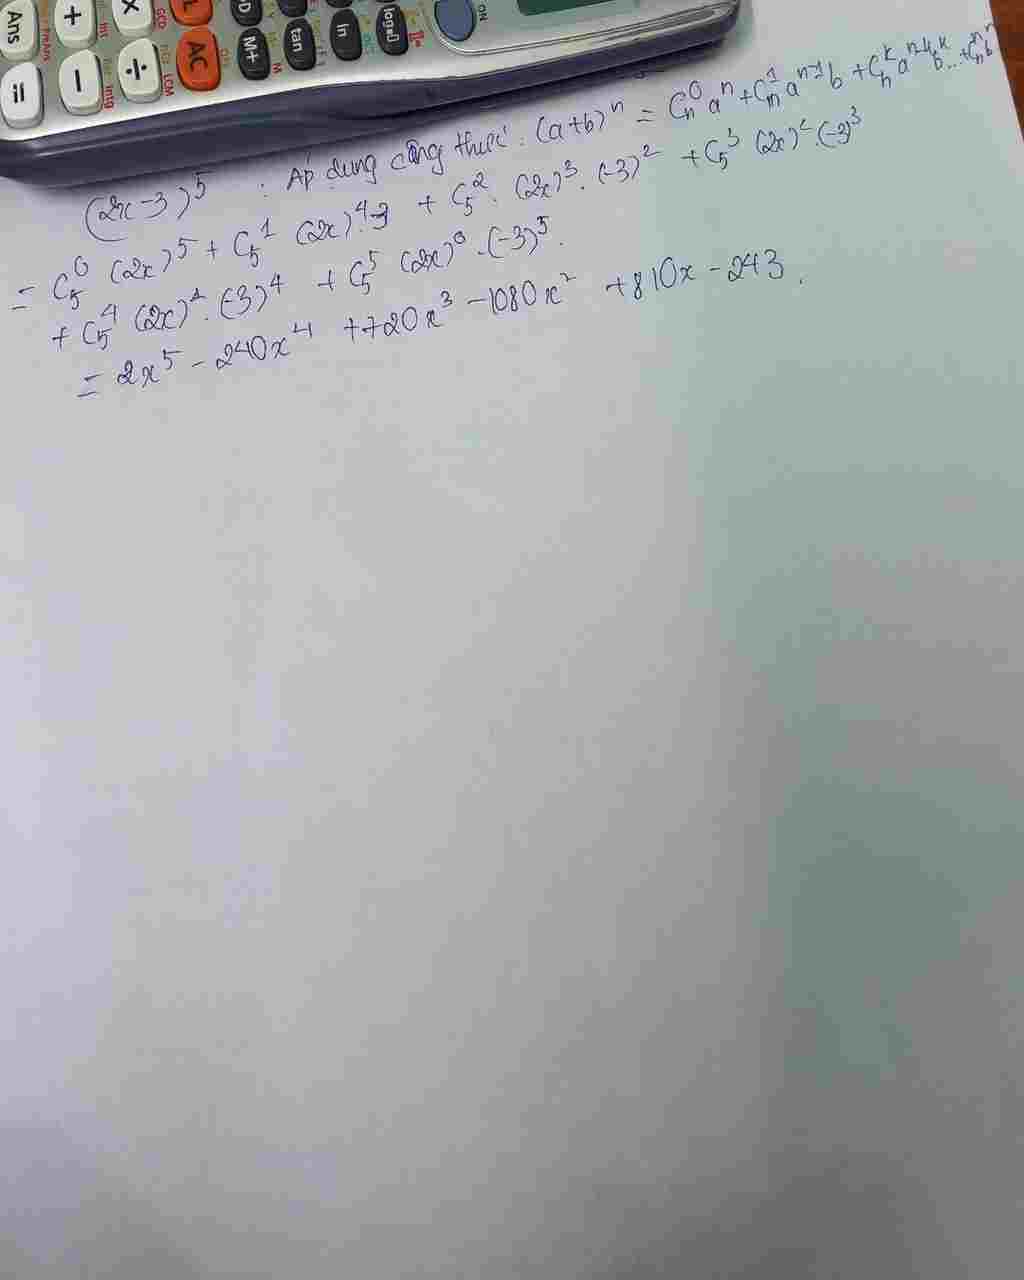 Ans
+
×
=
−
÷
AC
M+
tan
ln
log
ON
LCM
(2x-3)^5 : Áp dụng công thức: (a+b)^n = C_n^0 a^n + C_n^1 a^{n-1} b + C_n^k a^{n-k} b^k ... + C_n^n b^n
= C_5^0 (2x)^5 + C_5^1 (2x)^4.-3 + C_5^2 . (2x)^3 . (-3)^2 + C_5^3 (2x)^2 . (-3)^3
+ C_5^4 (2x)^1 . (-3)^4 + C_5^5 (2x)^0 . (-3)^5.
= 2x^5 - 240x^4 + 720x^3 - 1080x^2 + 810x - 243.